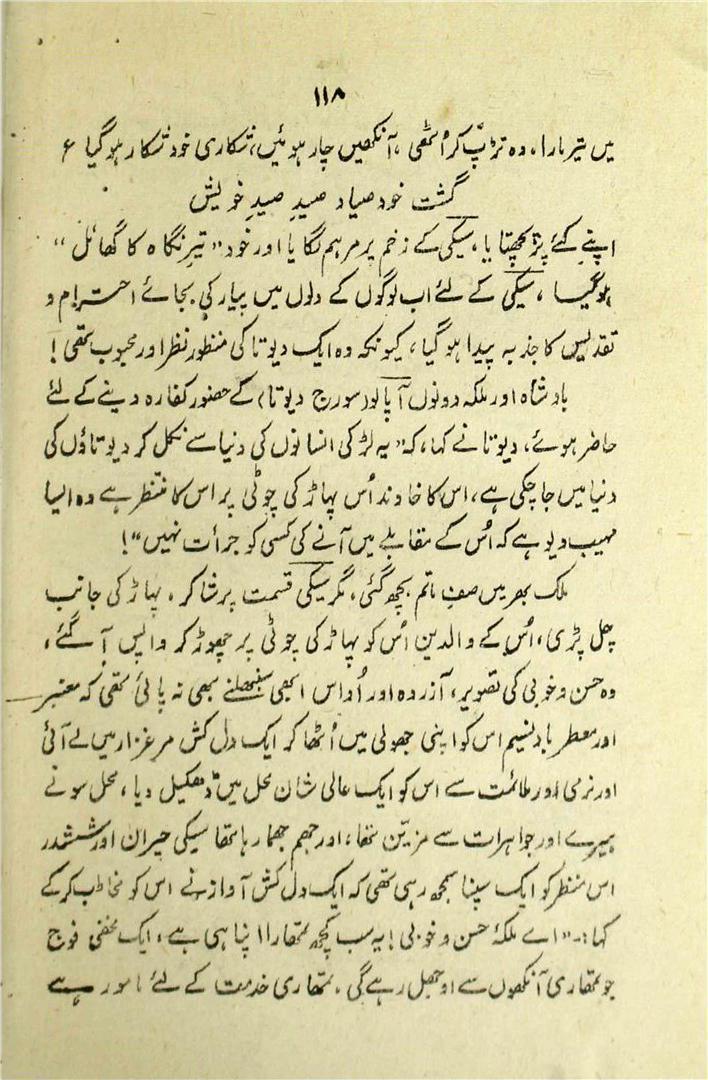 ۱۱۸
میں تیر مارا، وہ تڑپ کر اُٹھی، آنکھیں چار ہوئیں، شکاری خود شکار ہو گیا ع
گشت خود صیاد صیدِ صیدِ خویش
اپنے کئے پر پچھتایا، سیکی کے زخم پر مرہم لگایا اور خود "تیرِ نگاہ کا گھائل"
ہو گیا، سیکی کے لئے اب لوگوں کے دلوں میں پیار کی بجائے احترام و
تقدیس کا جذبہ پیدا ہو گیا، کیونکہ وہ ایک دیوتا کی منظورِ نظر اور محبوب تھی!
بادشاہ اور ملکہ دونوں آپالو (سورج دیوتا) کے حضور کفارہ دینے کے لئے
حاضر ہوئے، دیوتا نے کہا، کہ "یہ لڑکی انسانوں کی دنیا سے نکل کر دیوتاؤں کی
دنیا میں جا چکی ہے، اس کا خاوند اُس پہاڑ کی چوٹی پر اس کا منتظر ہے وہ ایسا
مہیب دیو ہے کہ اُس کے مقابلے میں آنے کی کسی کو جرأت نہیں"!
ملک بھر میں صفِ ماتم بچھ گئی، مگر سیکی قسمت پر شاکر، پہاڑ کی جانب
چل پڑی، اُس کے والدین اُس کو پہاڑ کی چوٹی پر چھوڑ کر واپس آ گئے،
وہ حسن و خوبی کی تصویر، آزردہ اور اُداس ابھی سنبھلنے بھی نہ پائی تھی کہ معنبر
اور معطر بادِ نسیم اس کو اپنی جھولی میں اُٹھا کر ایک دل کش مرغزار میں لے آئی
اور نرمی اور ملائمت سے اس کو ایک عالی شان محل میں دھکیل دیا، محل سونے
ہیرے اور جواہرات سے مزین تھا، اور جھم جھما رہا تھا سیکی حیران اور ششدر
اس منظر کو ایک سپنا سمجھ رہی تھی کہ ایک دل کش آواز نے اس کو مخاطب کر کے
کہا:۔ "اے ملکۂ حسن و خوبی! یہ سب کچھ تمھارا اپنا ہی ہے، ایک مخفی فوج
جو تمھاری آنکھوں سے اوجھل رہے گی، تمھاری خدمت کے لئے مامور ہے